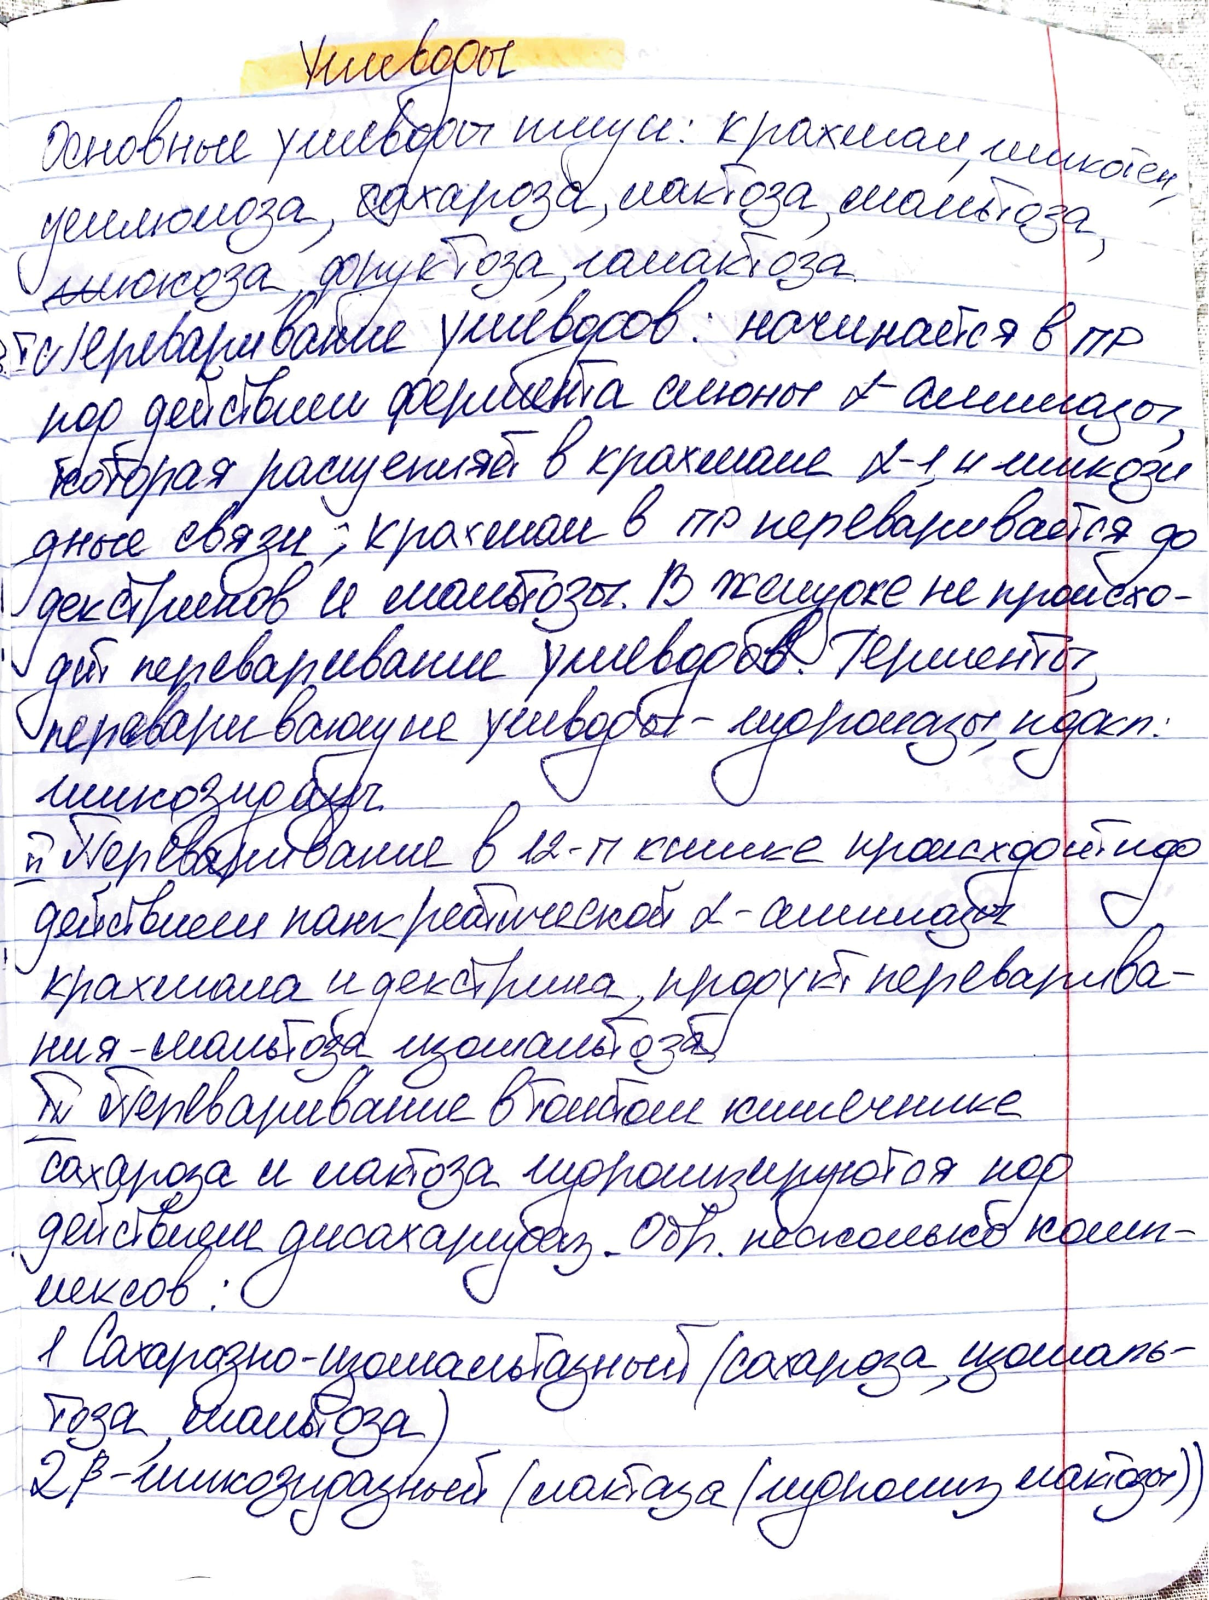 Углеводы
Основные углеводы пищи: крахмал, гликоген,
целлюлоза, сахароза, лактоза, мальтоза,
глюкоза, фруктоза, галактоза.
I Переваривание углеводов: начинается в ПР
под действием фермента слюны α-амилазы,
которая расщепляет в крахмале α-1,4 гликози
дные связи; крахмал в ПР переваривается до
декстринов и мальтозы. В желудке не происхо-
дит переваривание углеводов. Ферменты,
переваривающие углеводы - гидролазы, подкл:
гликозидазы.
II Переваривание в 12-п кишке происходит под
действием панкреатической α-амилазы
крахмала и декстрина, продукт переварива-
ния - мальтоза изомальтоза
III Переваривание в тонком кишечнике
сахароза и лактоза гидролизируются под
действием дисахаридаз. Обр. несколько комп-
лексов:
1 Сахарозно-изомальтазный (сахароза, изомаль-
тоза, мальтоза)
2 β-гликозидазный (лактаза (гидролиз лактозы))